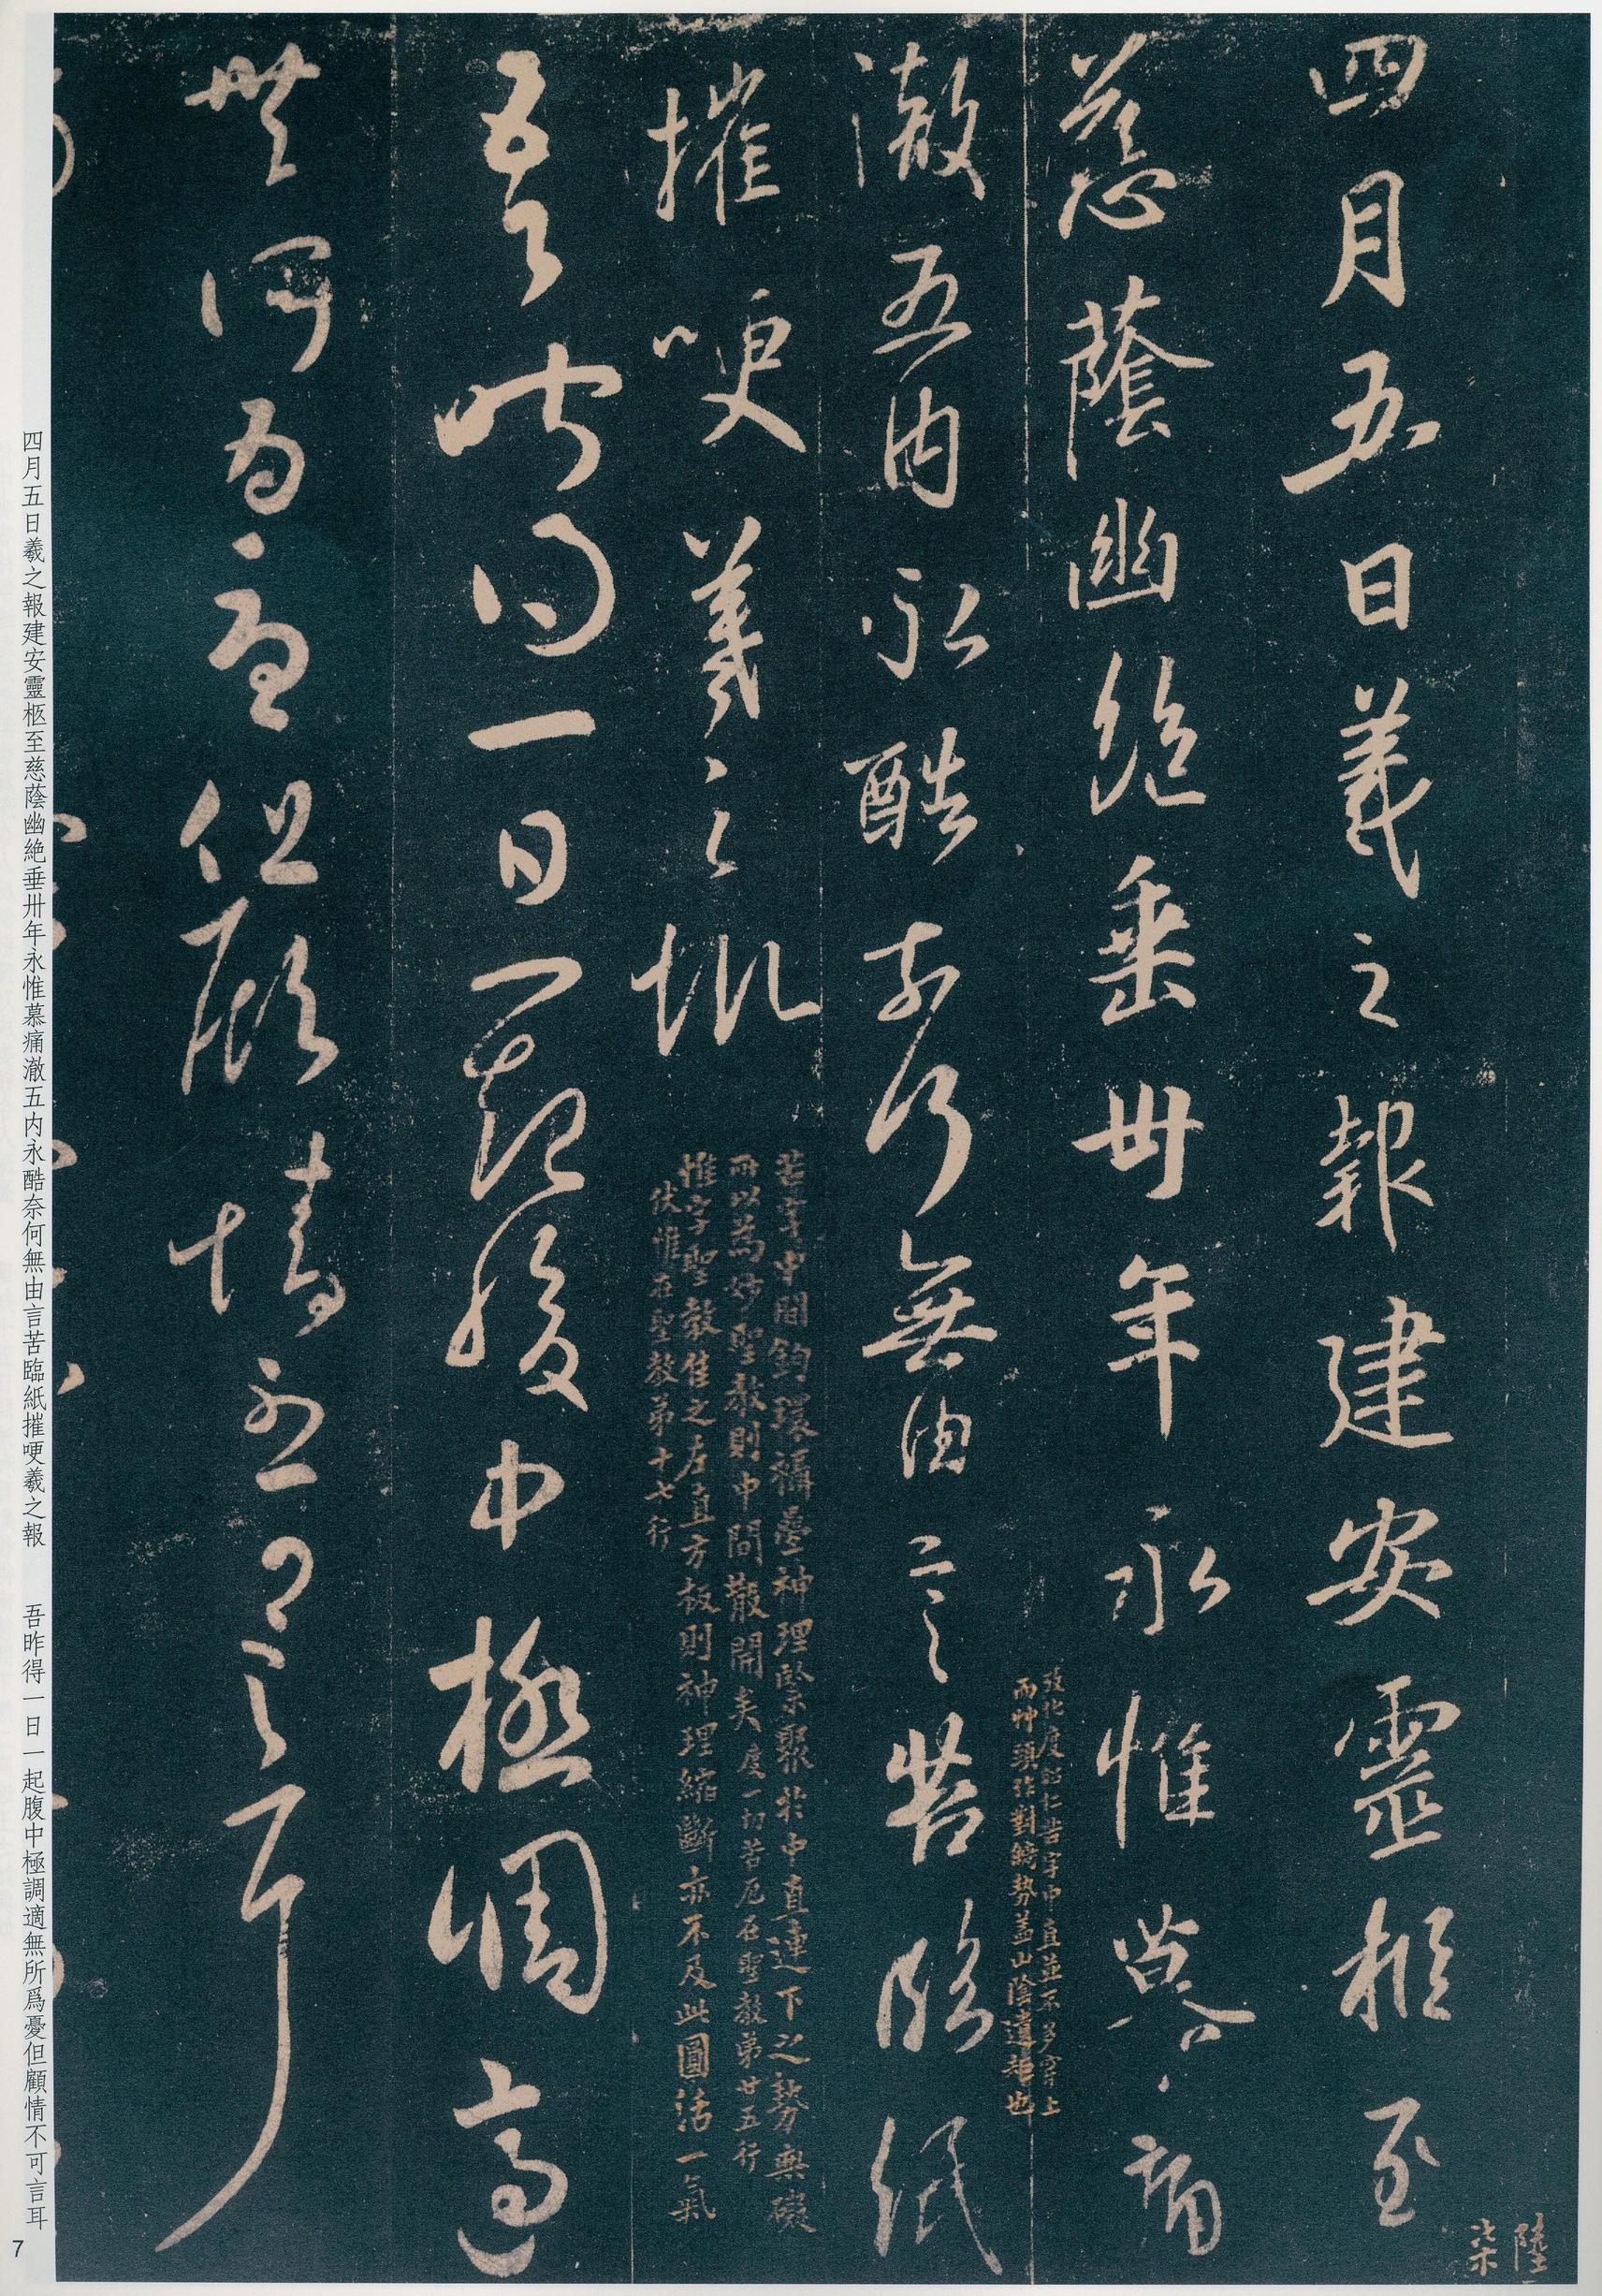 四月五日羲之報建安靈柩至
慈蔭幽絶垂卅年永惟慕痛
澈五内永酷奈何無由言苦臨紙
摧哽羲之報
吾昨得一日一起腹中極調適
無所爲憂但顧情不可言耳
苦字中間鈎環積疊神理緊聚於中直連下之勢無礙
所以爲妙聖教則中間散開矣度一切苦厄在聖教第廿五行
惟字聖教隹之左直方板則神理縮斷亦不及此圓活一氣
伏惟在聖教第十七行
而艸頭作對鋒勢蓋山陰遺矩也
陸
柒
四月五日羲之報建安靈柩至慈蔭幽絶垂卅年永惟慕痛澈五内永酷奈何無由言苦臨紙摧哽羲之報 吾昨得一日一起腹中極調適無所爲憂但顧情不可言耳
7